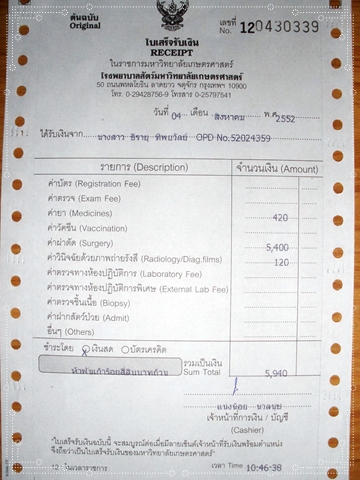 ต้นฉบับ
Original
เลขที่
No. 120430339
ใบเสร็จรับเงิน
RECEIPT
ในราชการมหาวิทยาลัยเกษตรศาสตร์
โรงพยาบาลสัตว์มหาวิทยาลัยเกษตรศาสตร์
50 ถนนพหลโยธิน ลาดยาว จตุจักร กรุงเทพฯ 10900
โทร. 0-29428756-9 โทรสาร 0-25797541
วันที่ 04 เดือน สิงหาคม พ.ศ. 2552
ได้รับเงินจาก นางสาว ธิราบุ ทิพย์วัลย์ OPD No.52024359
รายการ (Description) จำนวนเงิน (Amount)
ค่าบัตร (Registration Fee)
ค่าตรวจ (Exam Fee)
ค่ายา (Medicines) 420
ค่าวัคซีน (Vaccination)
ค่าผ่าตัด (Surgery) 5,400
ค่าวินิจฉัยด้วยภาพถ่ายรังสี (Radiology/Diag.films) 120
ค่าตรวจทางห้องปฏิบัติการ (Laboratory Fee)
ค่าตรวจทางห้องปฏิบัติการพิเศษ (External Lab Fee)
ค่าตรวจชิ้นเนื้อ (Biopsy)
ค่าฝากสัตว์ป่วย (Admit)
อื่นๆ (Others)
ชำระโดย เงินสด บัตรเครดิต
รวมเป็นเงิน
ห้าพันเก้าร้อยสี่สิบบาทถ้วน Sum Total 5,940
เจ้าหน้าที่การเงิน / บัญชี
(Cashier)
"ใบเสร็จรับเงินฉบับนี้ จะสมบูรณ์ต่อเมื่อมีลายเซ็นต์เจ้าหน้าที่รับเงินพร้อมตำแหน่ง
จึงถือว่าเป็นใบเสร็จรับเงินของมหาวิทยาลัยเกษตรศาสตร์"
12 ในเวลาราชการ เวลา Time 10:46:38